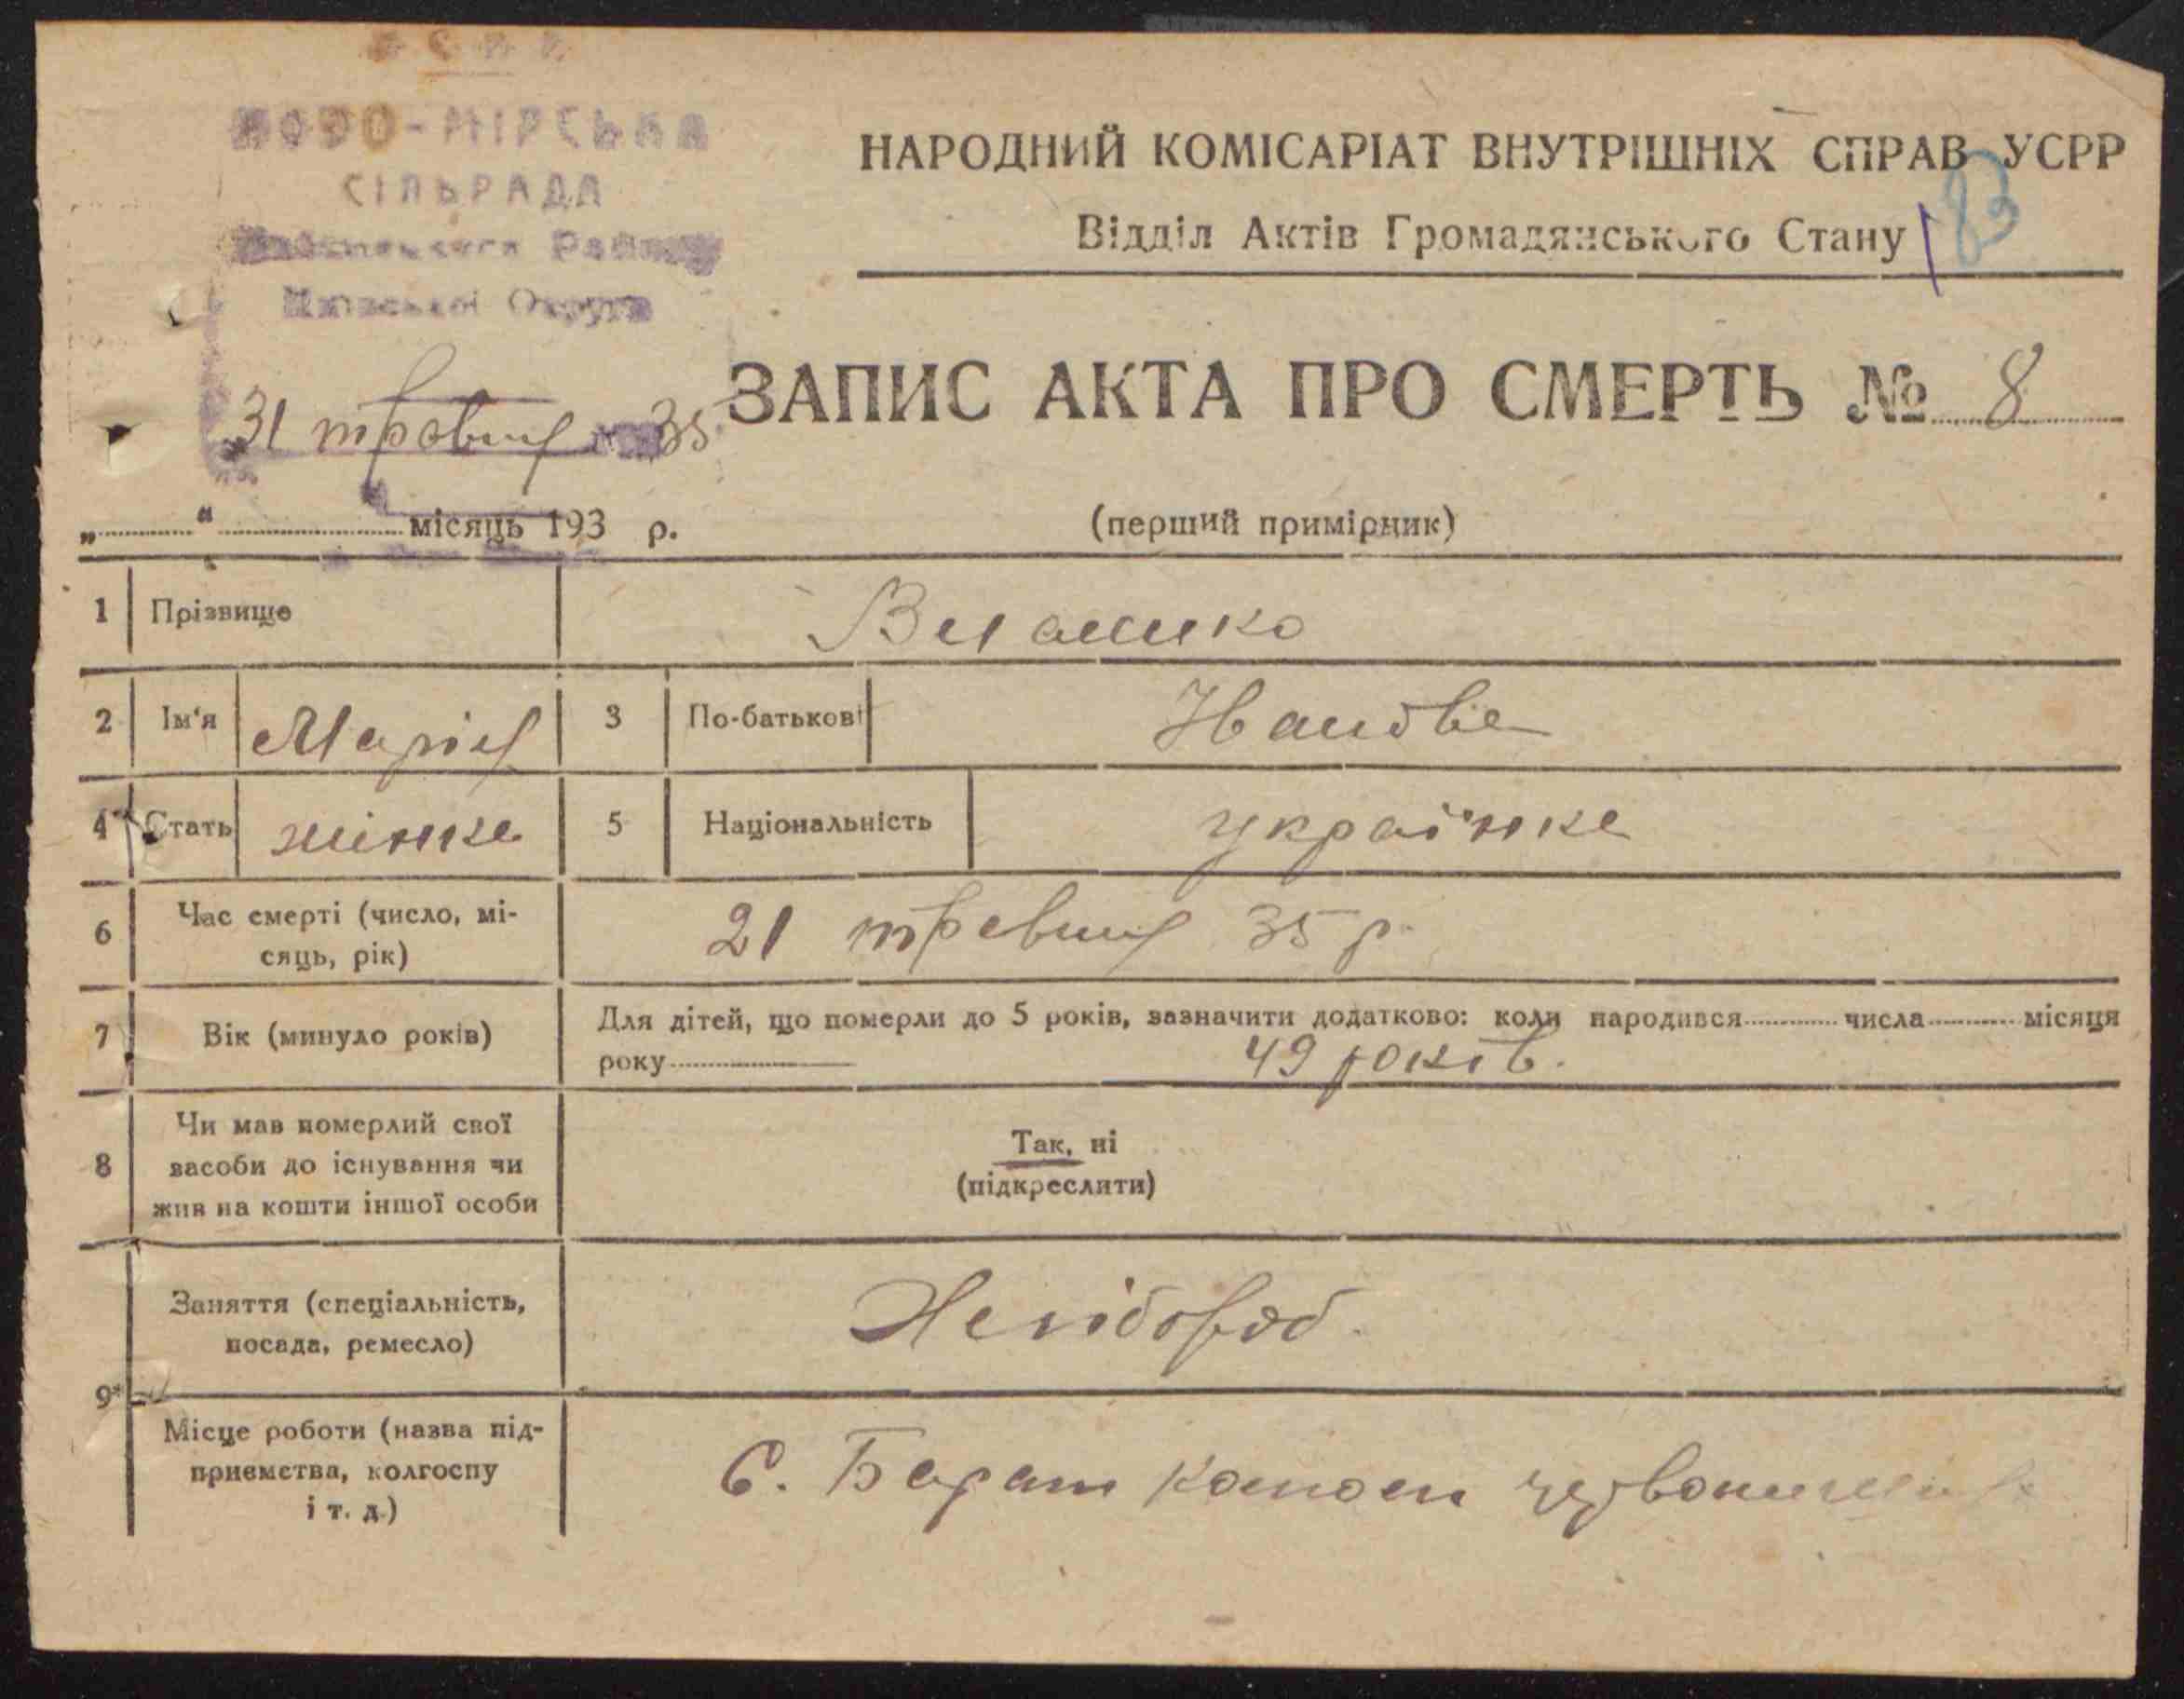 НОВО-МІРСЬКА
СІЛЬРАДА
Району
Округи
НАРОДНИЙ КОМІСАРІАТ ВНУТРІШНІХ СПРАВ УСРР
83
Відділ Актів Громадянського Стану
ЗАПИС АКТА ПРО СМЕРТЬ № 8
31 травня 35
„ “ місяць 193 р.
(перший примірник)
1 Прізвище
2 Ім‘я Марія 3 По-батькові Іванівна
4 Стать жінка 5 Національність українка
6 Час смерті (число, мі-
сяць, рік) 21 травня 35 р.
7 Вік (минуло років) Для дітей, що померли до 5 років, зазначити додатково: коли народився числа місяця
року 49 років.
8 Чи мав померлий свої
засоби до існування чи
жив на кошти іншої особи
Так, ні
(підкреслити)
9* Заняття (спеціальність,
посада, ремесло) Хлібороб.
Місце роботи (назва під-
приємства, колгоспу
і т. д.) С.